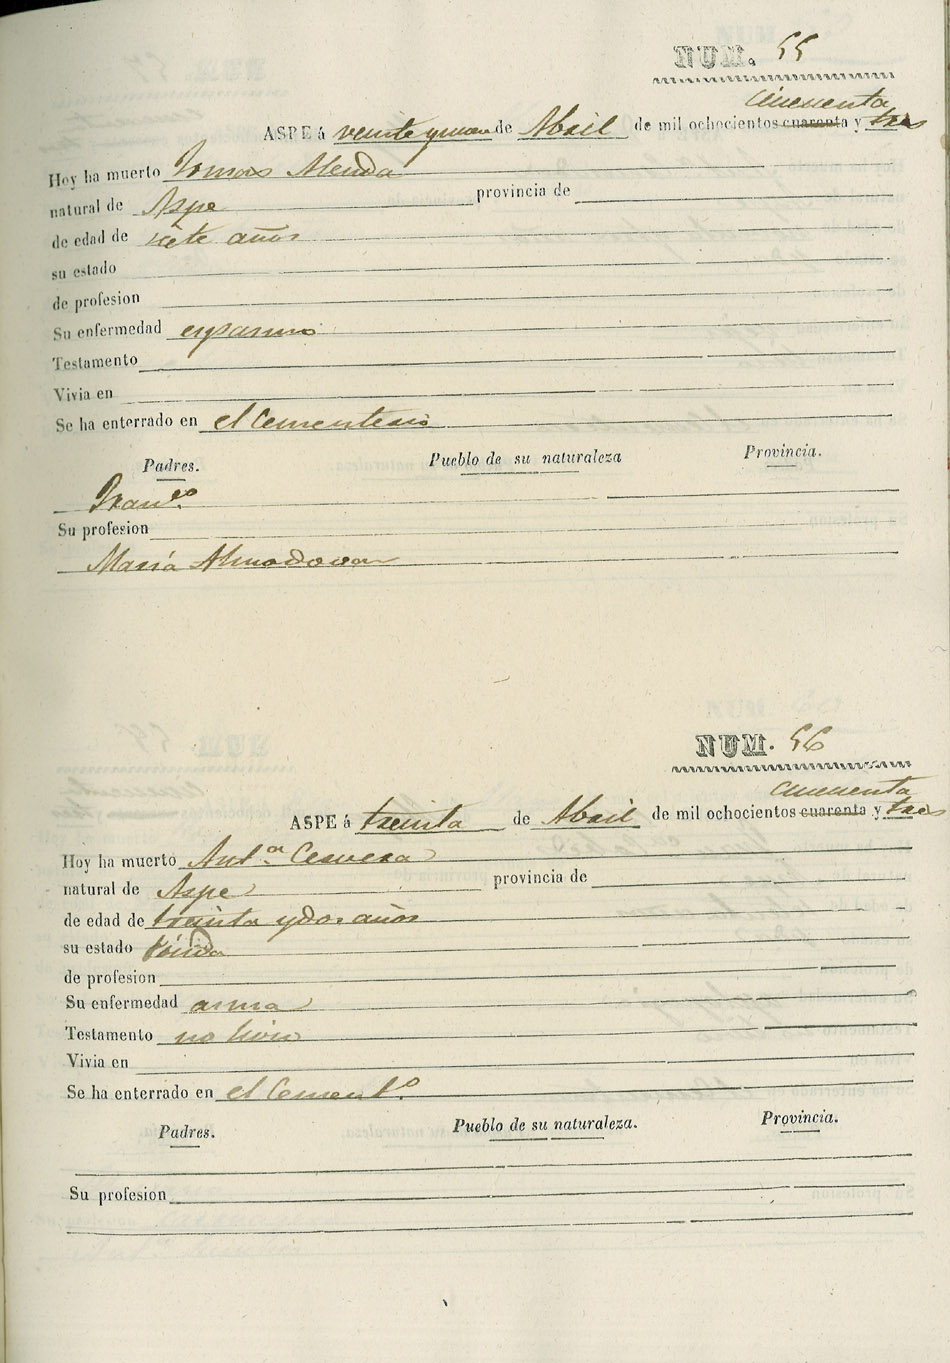 NUM. 55
cincuenta
ASPE á veinte y nueve de Abril de mil ochocientos cuarenta y tres
Hoy ha muerto Tomas Alenda
natural de Aspe provincia de
de edad de siete años
su estado
de profesion
Su enfermedad espasmo
Testamento
Vivia en
Se ha enterrado en el Cementerio
Padres. Pueblo de su naturaleza Provincia.
Franco
Su profesion
María Almodovar
NUM. 56
cincuenta
ASPE á treinta de Abril de mil ochocientos cuarenta y tres
Hoy ha muerto Anta Cervera
natural de Aspe provincia de
de edad de treinta y dos años
su estado Viuda
de profesion
Su enfermedad asma
Testamento no hizo
Vivia en
Se ha enterrado en el Cemento
Padres. Pueblo de su naturaleza. Provincia.
Su profesion